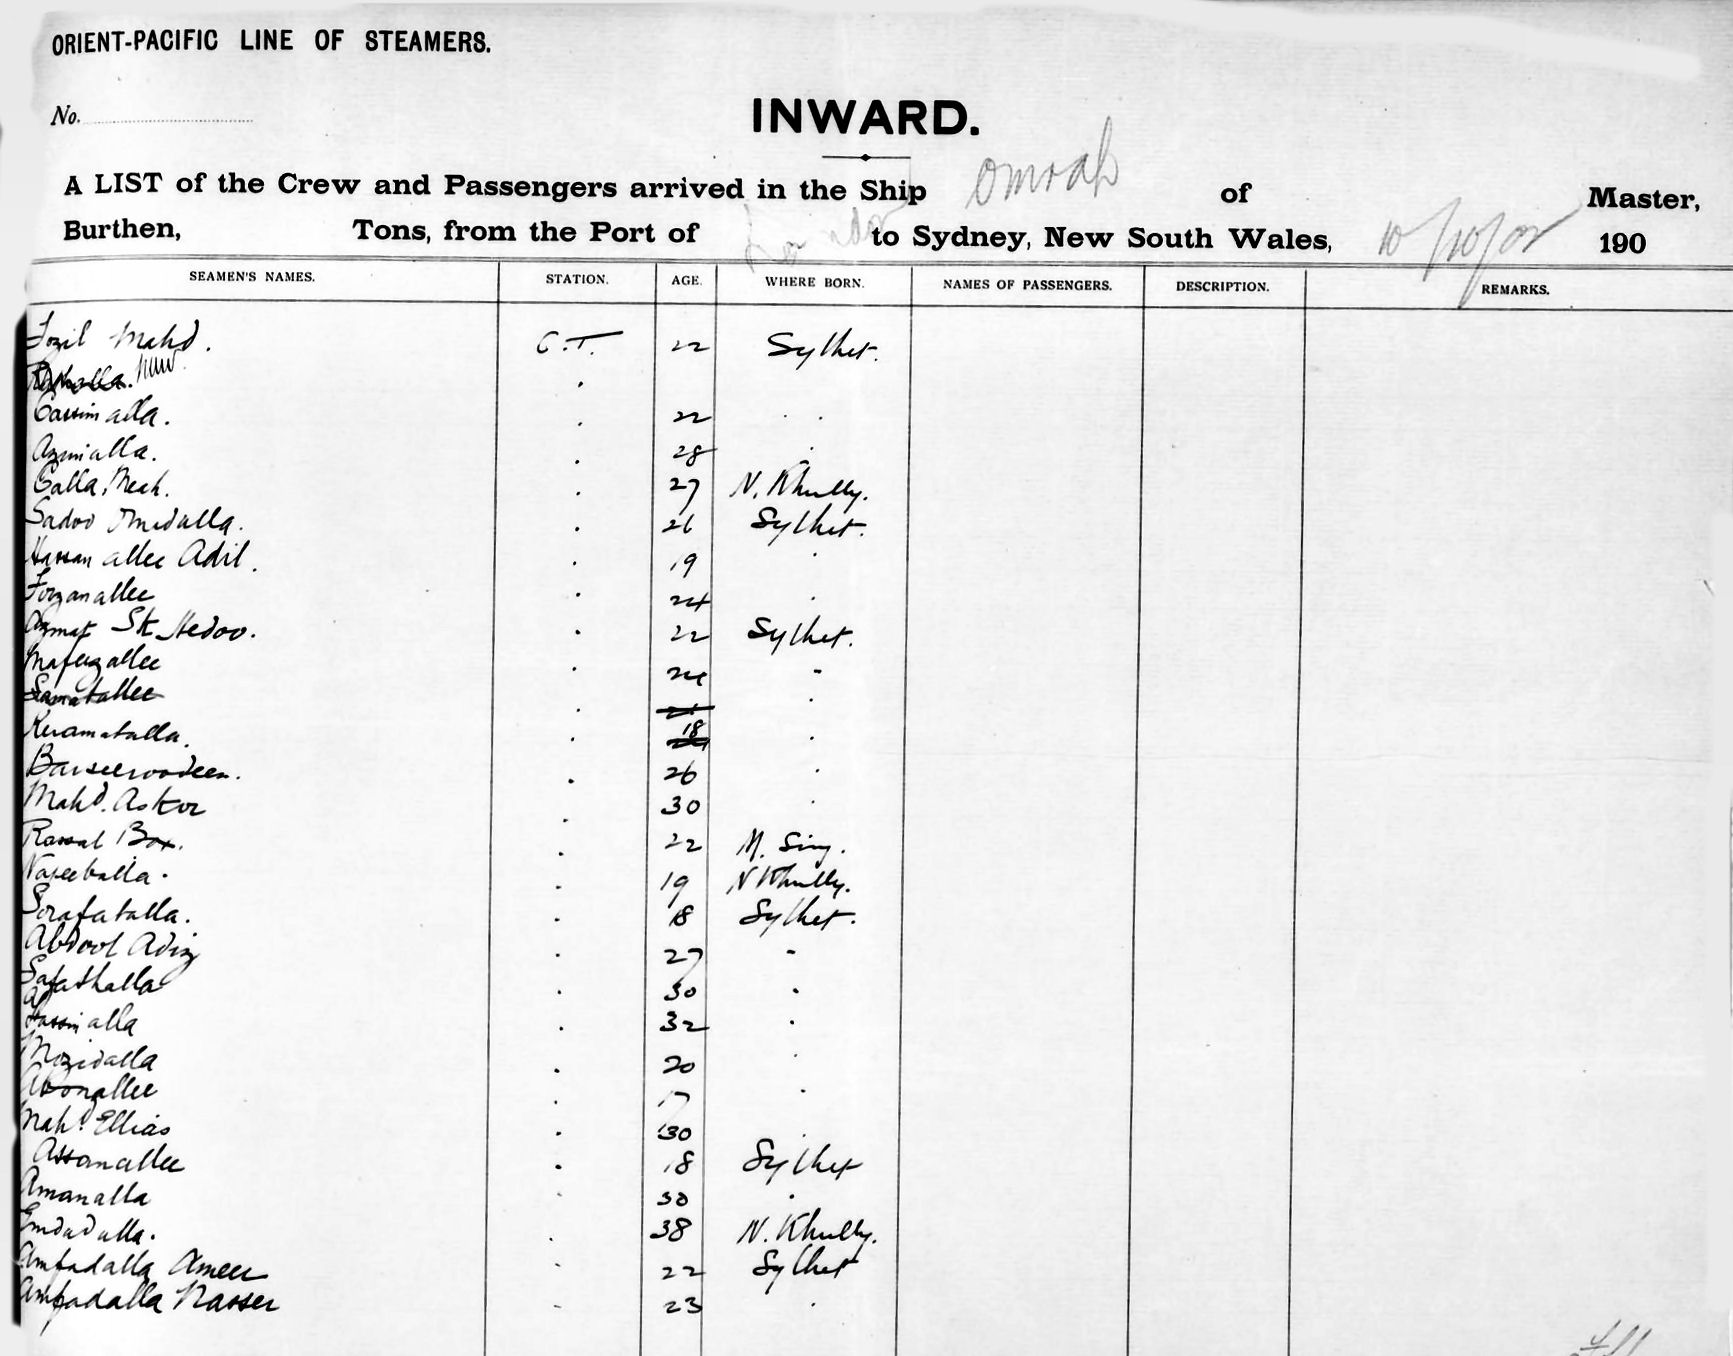 ORIENT-PACIFIC LINE OF STEAMERS.
No.
INWARD.
A LIST of the Crew and Passengers arrived in the Ship Omrah of Master,
Burthen, Tons, from the Port of London to Sydney, New South Wales, 190
SEAMEN'S NAMES. STATION. AGE. WHERE BORN. NAMES OF PASSENGERS. DESCRIPTION. REMARKS.
Fozil Mahd. C.T. 22 Sylhet.
Cassim alla. 22
Azmialla. 28
Calla Meah. 27 N. Khully.
Sadoo 26 Sylhet.
Hassan allee Adil. 19
Forzanallee 24
Azmat Sk Hedoo. 22 Sylhet.
Mafuzallee 24
Samatallee
Keramatalla. 18
Barseeroodeen. 26
Mahd. Askor 30
Rassal Box. 22 M. Sing.
Nazeeballa. 19 N Khully.
Sorafatalla. 18 Sylhet.
Abdool Adiz 27
Safathalla 30
32
Mozidalla 20
Abonallee 17
Mahd Ellias 30
Assanallee 18 Sylhet
Amanalla 30
Emdadulla. 38 N. Khully.
Amfadalla Ameer 22 Sylhet
Amfadalla Nasser 23